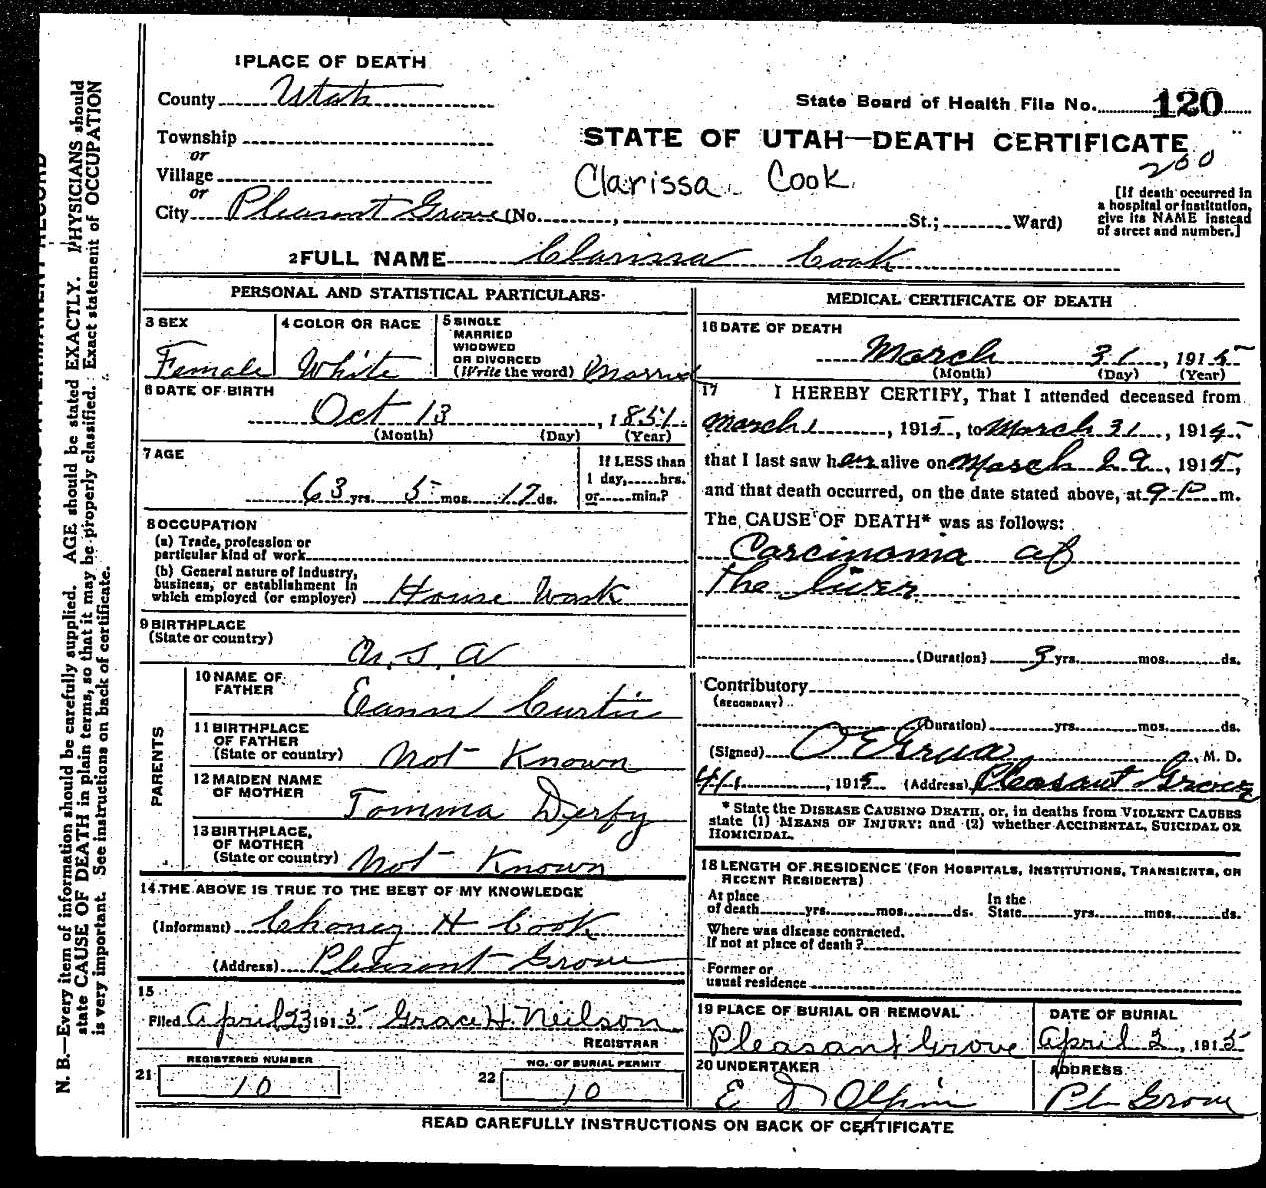 1 PLACE OF DEATH
County Utah
State Board of Health File No. 120
Township
STATE OF UTAH—DEATH CERTIFICATE
or
200
Village
Clarissa Cook
or
City Pleasant Grove (No. , St.; Ward)
[If death occurred in
a hospital or institution,
give its NAME instead
of street and number.]
2 FULL NAME Clarissa Cook
PERSONAL AND STATISTICAL PARTICULARS
3 SEX
Female
4 COLOR OR RACE
White
5 SINGLE
MARRIED
WIDOWED
OR DIVORCED
(Write the word) Married
6 DATE OF BIRTH
Oct 13, 1851
(Month) (Day) (Year)
7 AGE
63 yrs. 5 mos. 17 ds.
If LESS than
1 day, hrs.
or min.?
8 OCCUPATION
(a) Trade, profession or
particular kind of work
(b) General nature of industry,
business, or establishment in
which employed (or employer) House Work
9 BIRTHPLACE
(State or country)
U.S.A
PARENTS
10 NAME OF
FATHER
Curtis
11 BIRTHPLACE
OF FATHER
(State or country) Not Known
12 MAIDEN NAME
OF MOTHER
13 BIRTHPLACE
OF MOTHER
(State or country) Not Known
14 THE ABOVE IS TRUE TO THE BEST OF MY KNOWLEDGE
(Informant) H Cook
(Address) Pleasant Grove
15
Filed April 23 1915 Grace H. Neilson
REGISTRAR
REGISTERED NUMBER
21 10
NO. OF BURIAL PERMIT
22 10
MEDICAL CERTIFICATE OF DEATH
16 DATE OF DEATH
March 31, 1915
(Month) (Day) (Year)
17 I HEREBY CERTIFY, That I attended deceased from
March 1, 1915, to March 31, 1915
that I last saw her alive on March 29, 1915,
and that death occurred, on the date stated above, at 9 P m.
The CAUSE OF DEATH* was as follows:
Carcinoma of
the liver
(Duration) 3 yrs. mos. ds.
Contributory
(SECONDARY)
(Duration) yrs. mos. ds.
(Signed) M. D.
4/1, 1915 (Address) Pleasant Grove
* State the DISEASE CAUSING DEATH, or, in deaths from VIOLENT CAUSES
state (1) MEANS OF INJURY; and (2) whether ACCIDENTAL, SUICIDAL OR
HOMICIDAL.
18 LENGTH OF RESIDENCE (FOR HOSPITALS, INSTITUTIONS, TRANSIENTS, OR
RECENT RESIDENTS)
At place
of death yrs. mos. ds.
In the
State yrs. mos. ds.
Where was disease contracted,
If not at place of death?
Former or
usual residence
19 PLACE OF BURIAL OR REMOVAL
Pleasant Grove
DATE OF BURIAL
April 2, 1915
20 UNDERTAKER
E D Olpin
ADDRESS
Pl. Grove
READ CAREFULLY INSTRUCTIONS ON BACK OF CERTIFICATE
N. B.—Every item of information should be carefully supplied. AGE should be stated EXACTLY. PHYSICIANS should
state CAUSE OF DEATH in plain terms, so that it may be properly classified. Exact statement of OCCUPATION
is very important. See instructions on back of certificate.